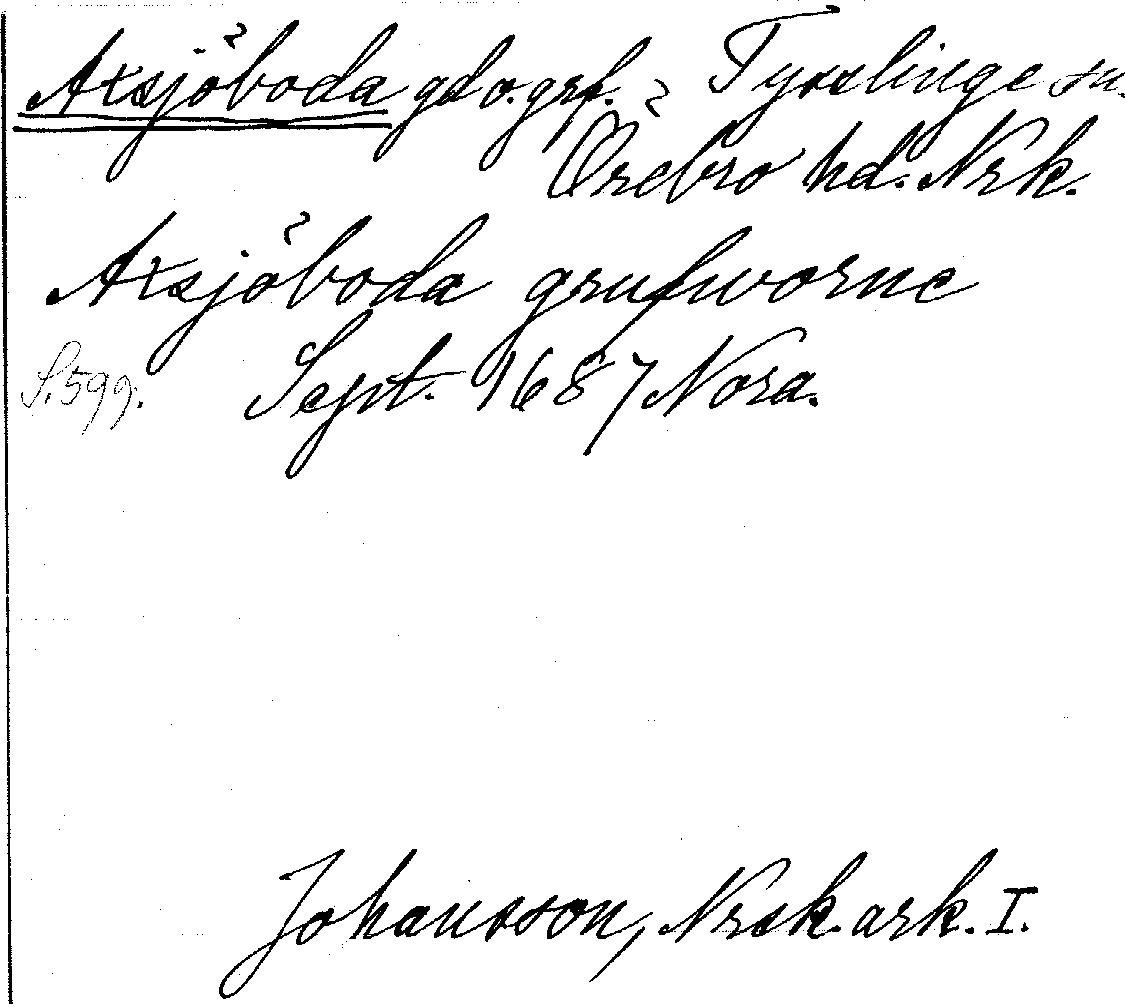 Axsjöboda gd o. grf. Tysslinge sn.
Örebro hd. Nrk.
Axsjöboda grufworne
S. 599. Sept. 1687 Nora.
Johansson, Nrsk. ark. I.